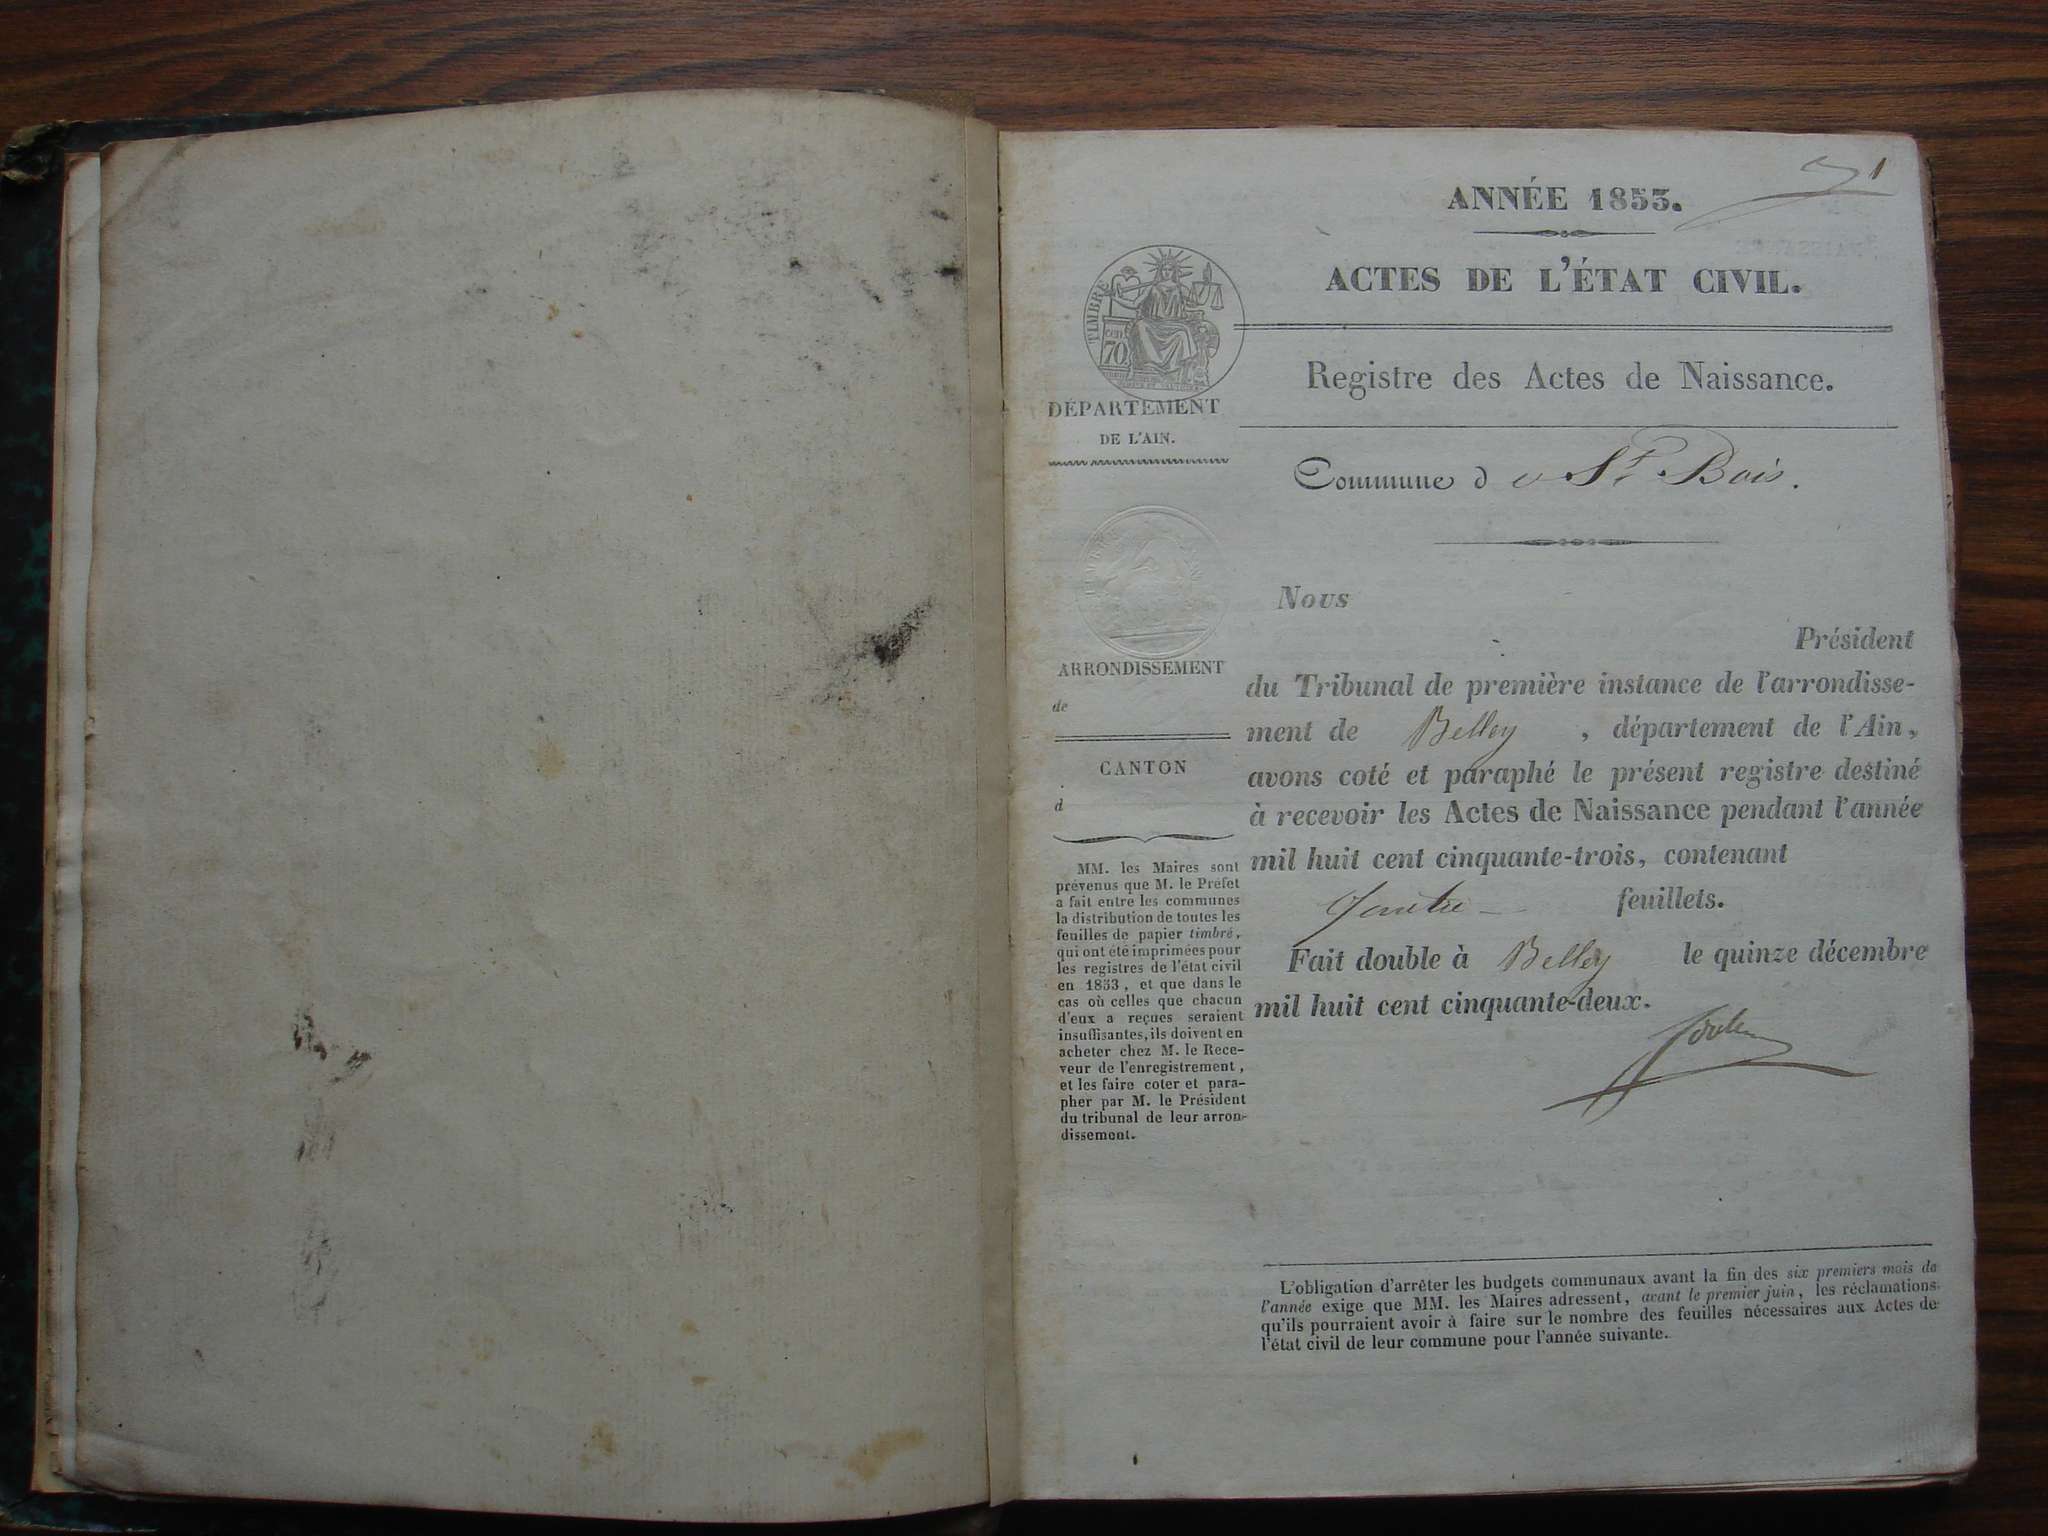 1
ANNÉE 1853.
ACTES DE L'ÉTAT CIVIL.
TIMBRE
CENT
70
Registre des Actes de Naissance.
DÉPARTEMENT
DE L'AIN.
Commune de St Bois.
Nous
Président
du Tribunal de première instance de l'arrondisse-
ment de Belley, département de l'Ain,
avons coté et paraphé le présent registre destiné
à recevoir les Actes de Naissance pendant l'année
mil huit cent cinquante-trois, contenant
feuillets.
Fait double à Belley le quinze décembre
mil huit cent cinquante-deux.
ARRONDISSEMENT
de
CANTON
d
MM. les Maires sont
prévenus que M. le Préfet
a fait entre les communes
la distribution de toutes les
feuilles de papier timbré,
qui ont été imprimées pour
les registres de l'état civil
en 1853, et que dans le
cas où celles que chacun
d'eux a reçues seraient
insuffisantes, ils doivent en
acheter chez M. le Rece-
veur de l'enregistrement,
et les faire coter et para-
pher par M. le Président
du tribunal de leur arron-
dissement.
L'obligation d'arrêter les budgets communaux avant la fin des six premiers mois de
l'année exige que MM. les Maires adressent, avant le premier juin, les réclamations
qu'ils pourraient avoir à faire sur le nombre des feuilles nécessaires aux Actes de
l'état civil de leur commune pour l'année suivante.